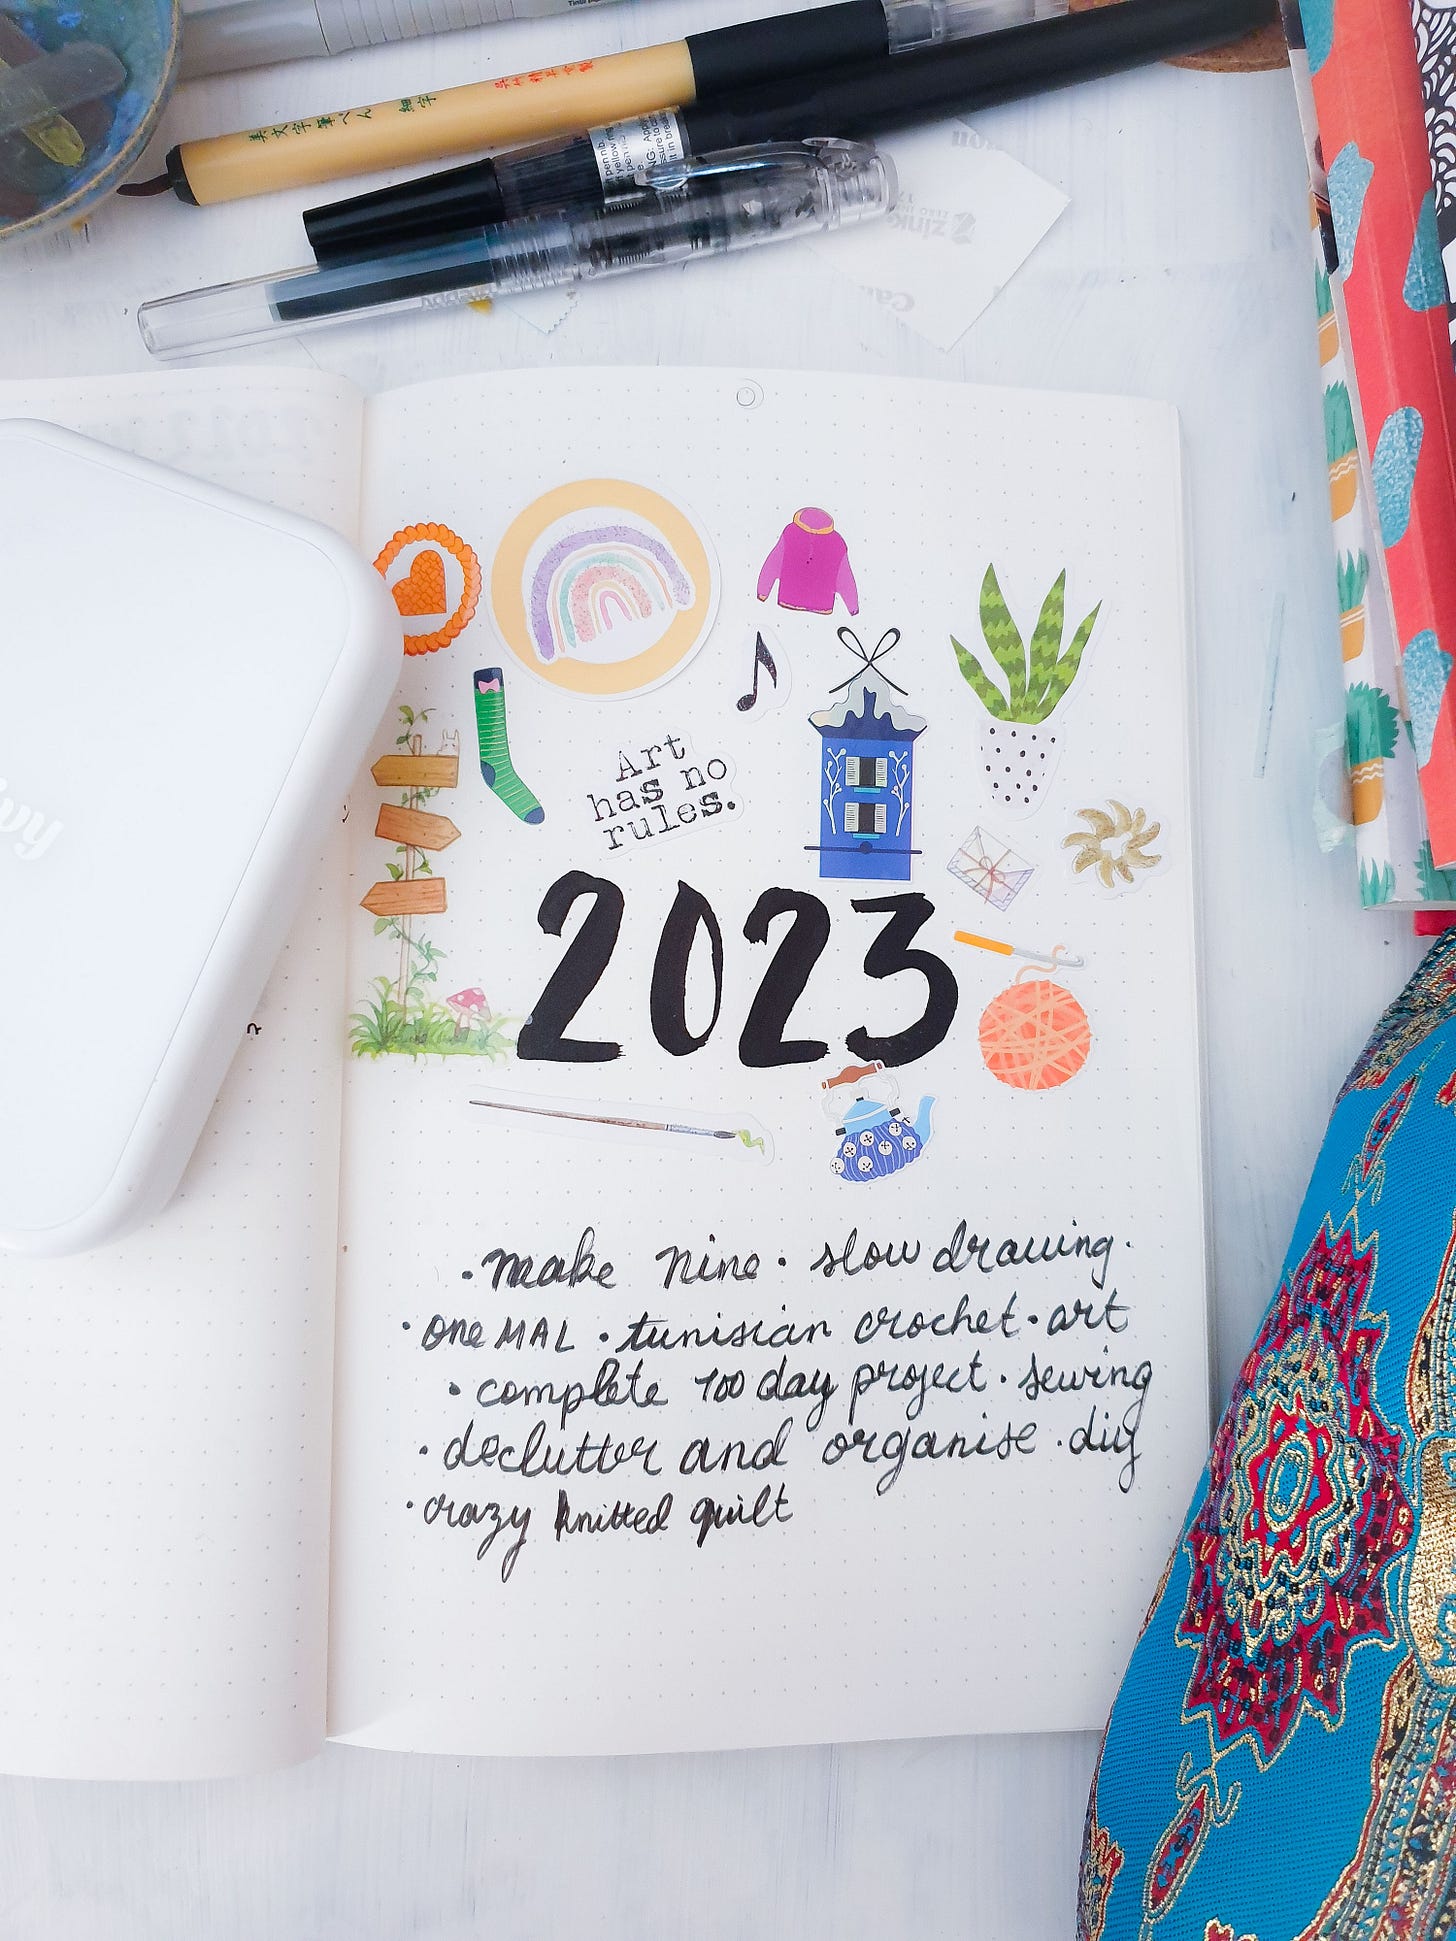 美文字筆ぺん 細字
zink
ZERO
Can
Art
has no
rules.
2023
• make nine • slow drawing •
• one MAL • tunisian crochet • art
• complete 100 day project • sewing
• declutter and organise • diy
• crazy knitted quilt